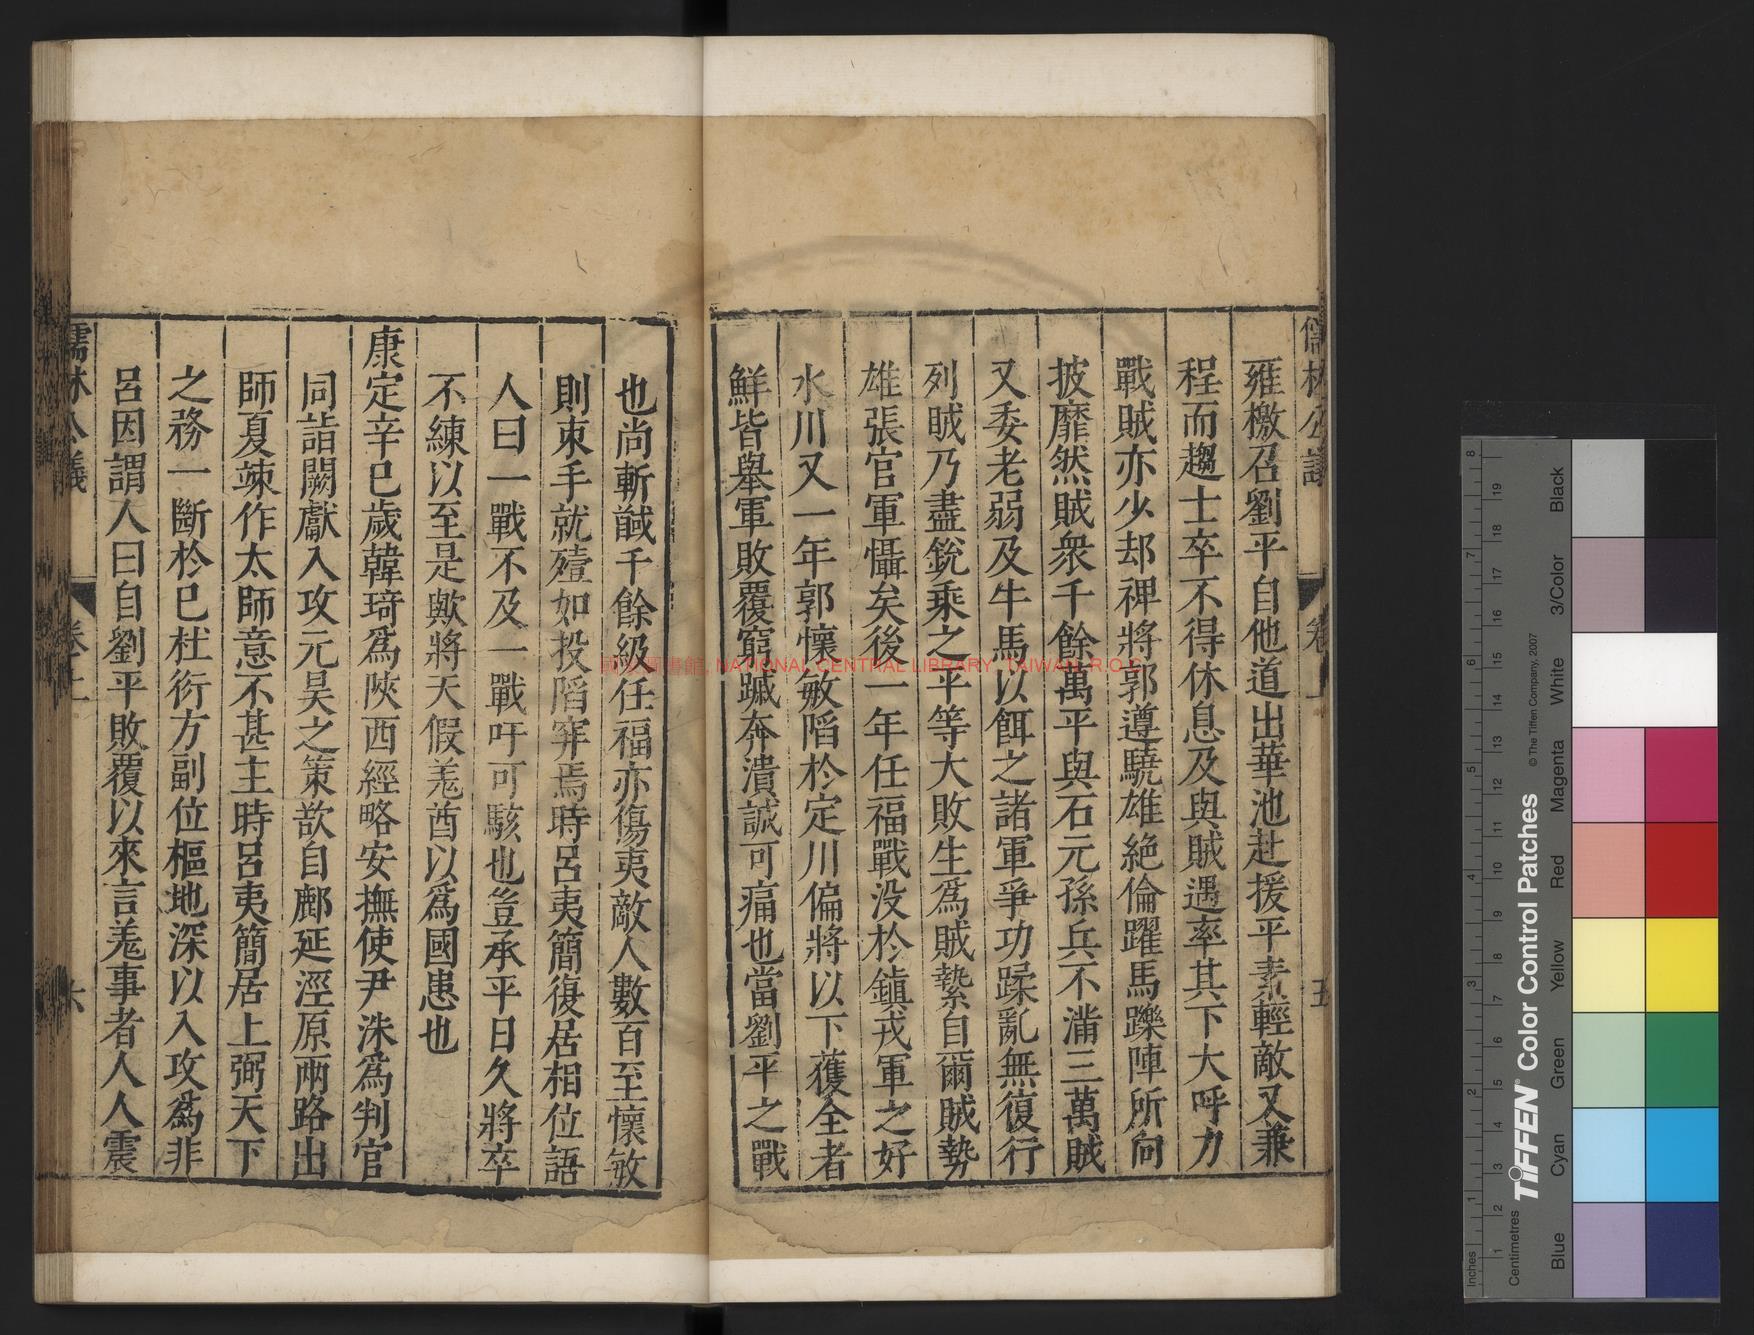 儒林公議 卷上 五
雍檄召劉平自他道出華池赴援平素輕敵又兼
程而趨士卒不得休息及與賊遇率其下大呼力
戰賊亦少却裨將郭遵驍雄絶倫躍馬躒陣所向
披靡然賊衆千餘萬平與石元孫兵不滿三萬賊
又委老弱及牛馬以餌之諸軍爭功蹂亂無復行
列賊乃盡銳乘之平等大敗生爲賊縶自爾賊勢
雄張官軍懾矣後一年任福戰没於鎮戎軍之好
水川又一年郭懷敏陷於定川偏將以下獲全者
鮮皆舉軍敗覆窮蹙奔潰誠可痛也當劉平之戰
也尚斬馘千餘級任福亦傷夷敵人數百至懷敏
則束手就殪如投陷穽焉時呂夷簡復居相位語
人曰一戰不及一戰吁可駭也豈承平日久將卒
不練以至是歟將天假羗酋以爲國患也
康定辛巳歲韓琦爲陝西經略安撫使尹洙爲判官
同詣闕獻入攻元昊之策欲自鄜延涇原兩路出
師夏竦作太師意不甚主時呂夷簡居上弼天下
之務一斷於巳杜衍方副位樞地深以入攻爲非
呂因謂人曰自劉平敗覆以來言羗事者人人震
儒林公議 卷上 六
國家圖書館, NATIONAL CENTRAL LIBRARY, TAIWAN, R.O.C.
TIFFEN® Color Control Patches
© The Tiffen Company, 2007
Inches 1 2 3 4 5 6 7 8
Centimetres 1 2 3 4 5 6 7 8 9 10 11 12 13 14 15 16 17 18 19
Blue Cyan Green Yellow Red Magenta White 3/Color Black